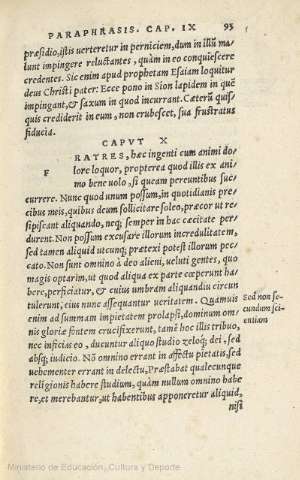 PARAPHRASIS. CAP. IX 95
præsidio, istis verteretur in perniciem, dum in illū ma
lunt impingere reluctantes, quàm in eo conquiescere
credentes. Sic enim apud prophetam Esaiam loquitur
deus Christi pater: Ecce pono in Sion lapidem in quē
impingant, & saxum in quod incurrant. Cæterū quis
quis crediderit in eum, non erubescet, sua frustratus
fiducia.
CAPVT X
F RATRES, hæc ingenti cum animi do
lore loquor, propterea quod illis ex ani
mo bene uolo, si queam pereuntibus suc
currere. Nunc quod unum possum, in quotidianis pre
cibus meis, quibus deum sollicitare soleo, precor ut re
sipiscant aliquando, neq; semper in hac cæcitate per
durent. Non possum excusare illorum incredulitatem,
sed tamen aliquid utcunq; prætexi potest illorum pec
cato. Non sunt omnino à deo alieni, ueluti gentes, quo
magis optarim, ut quod aliqua ex parte cœperunt ha
bere, perficiatur, & cuius umbram aliquandiu circun
tulerunt, eius nunc assequantur ueritatem. Quamuis
enim ad summam impietatem prolapsi, dominum om
nis gloriæ fontem crucifixerunt, tamē hoc illis tribuo,
nec inficias eo, ducuntur aliquo studio zeloq; dei, sed
absq; iudicio. Nō omnino errant in affectu pietatis, sed
uehementer errant in delectu, Præstabat qualecunque
religionis habere studium, quàm nullum omnino habe
re, et merebantur, ut habentibus apponeretur aliquid,
nisi
Sed non se
cundum sci
entiam
Ministerio de Educación, Cultura y Deporte